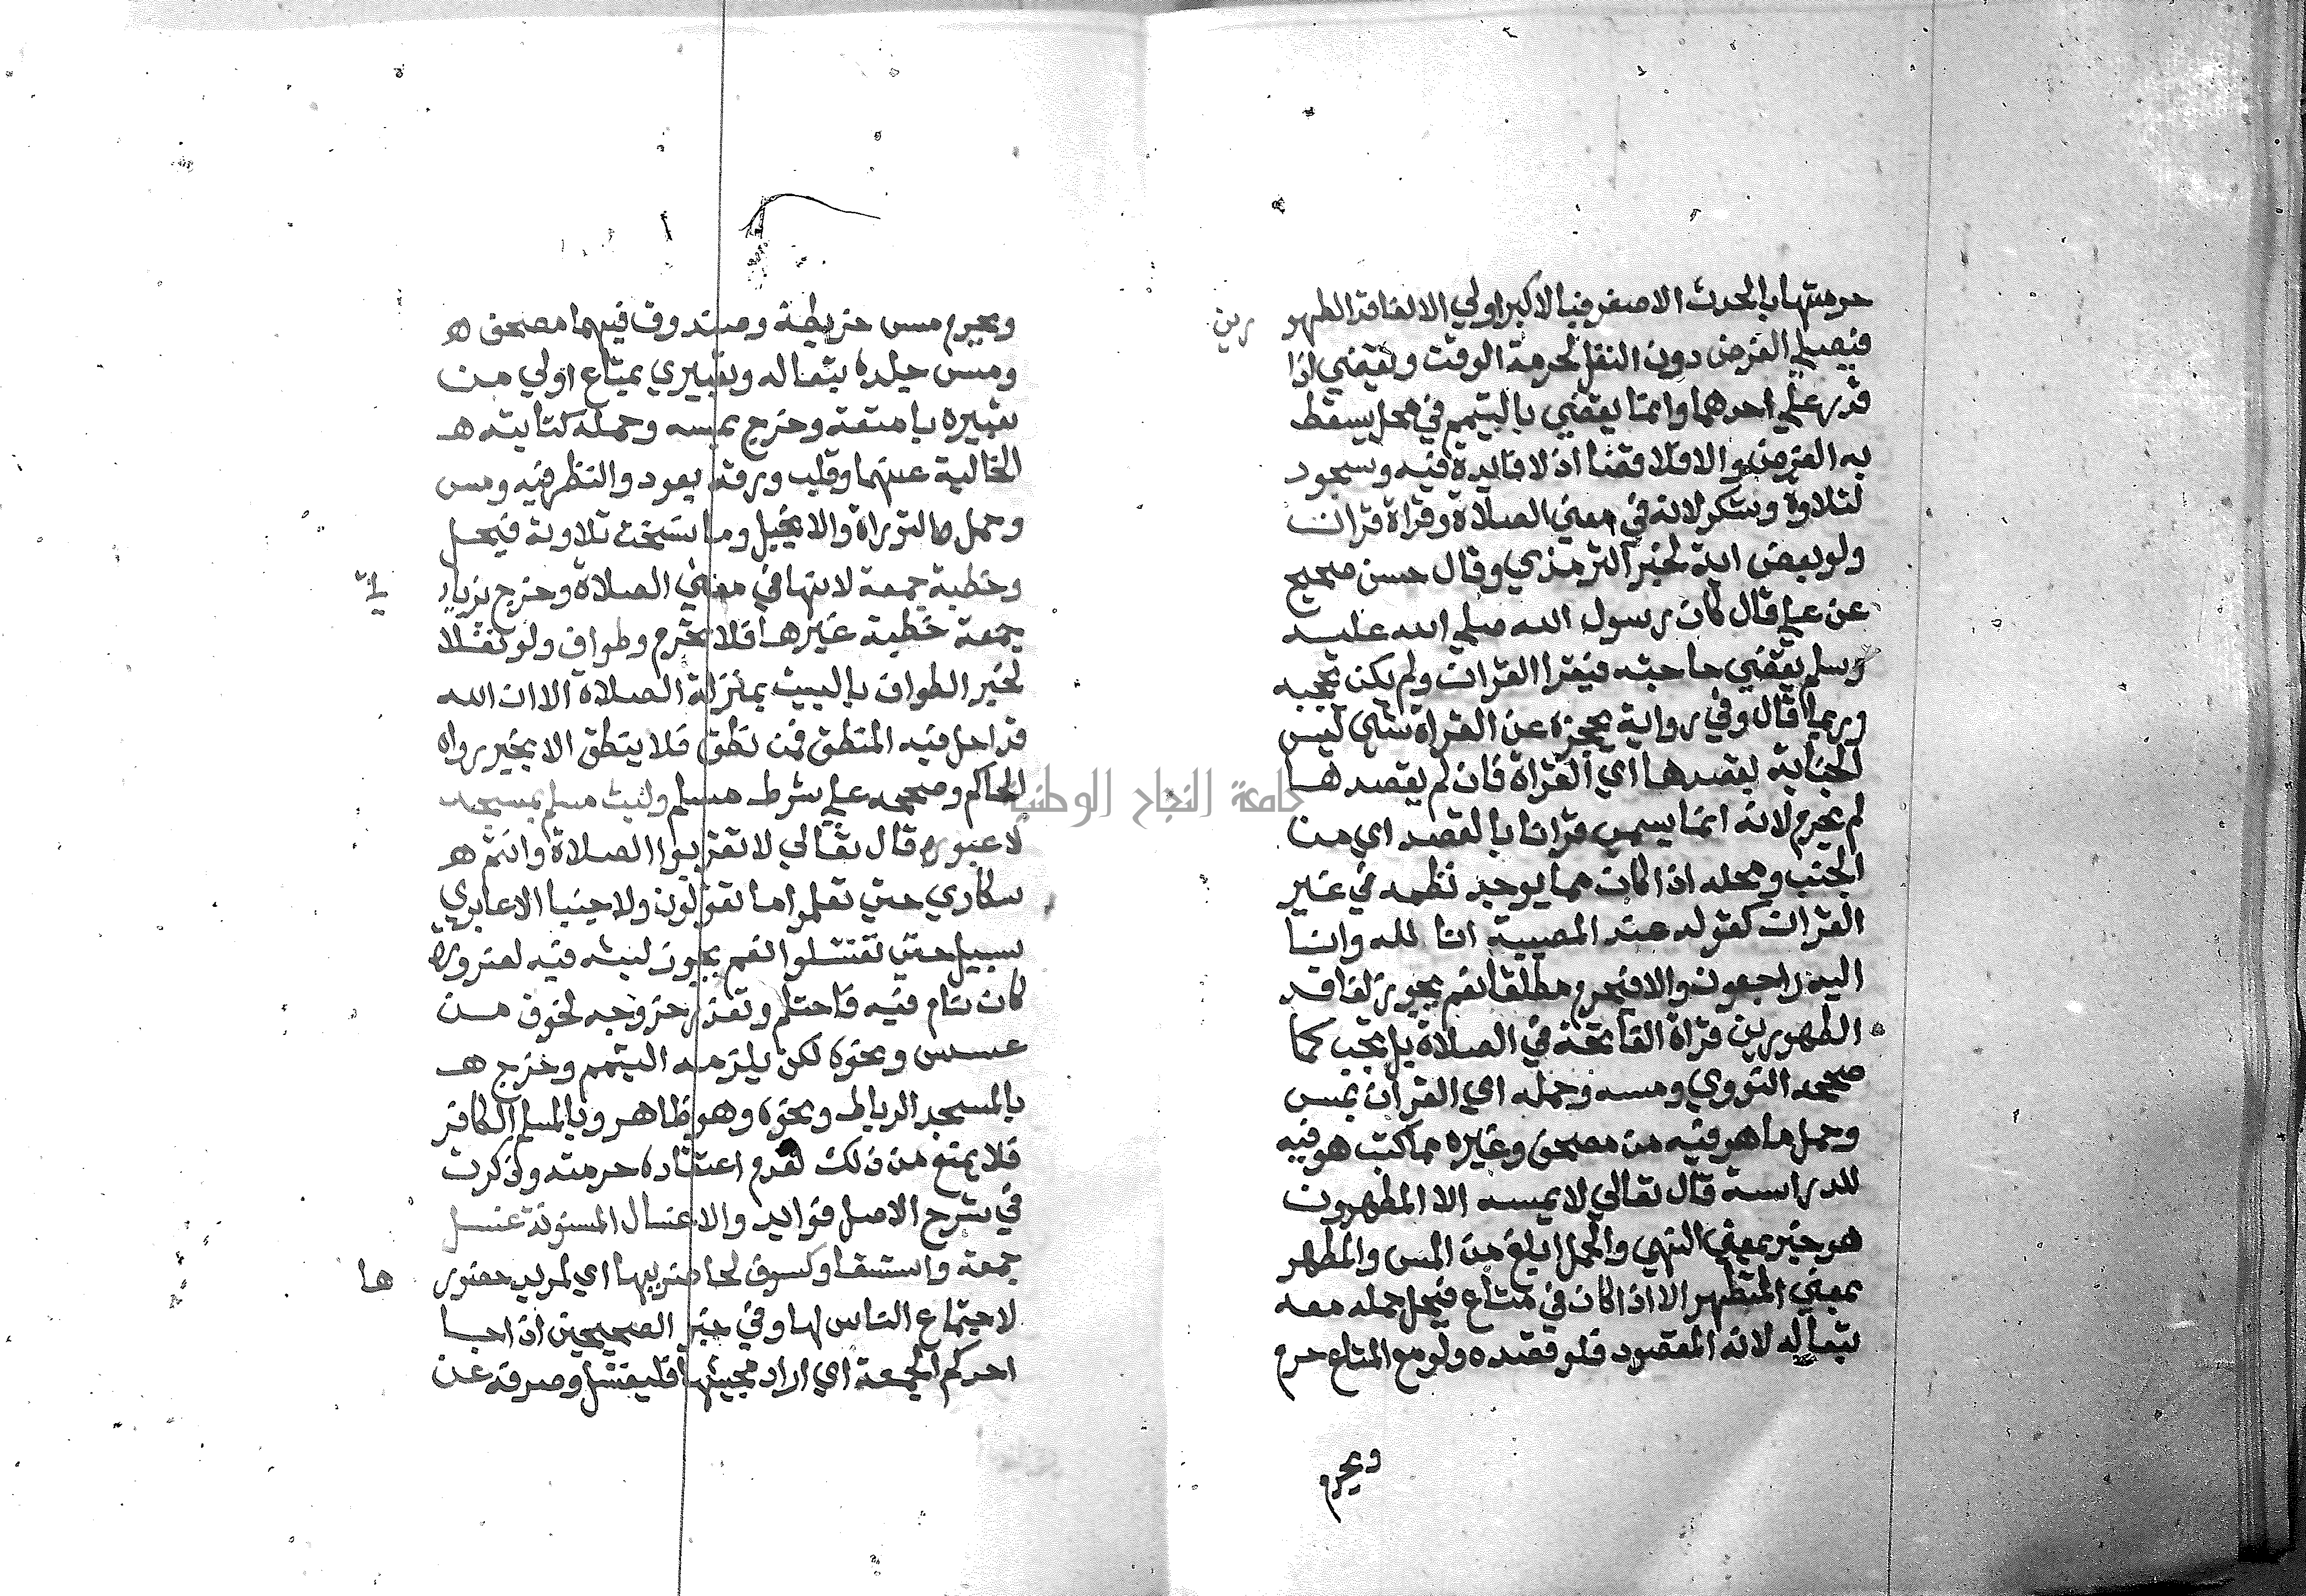 حرمتها بالحدث الاصغر فبالاكبر اولي الا لفاقد الطهو رين
فيصلي الفرض دون النفل لحرمة الوقت ويقضي اذا
قدر علي احدهما وانما يقضي بالتيمم في محل يسقط
به الفرض والا فلا قضا اذ لا فايدة فيه وسجود
لتلاوة وشكر لانه في معني الصلاة وقراة قران
ولو بعض اية لخبر الترمذي وقال حسن صحيح
عن علي قال كان رسول الله صلي الله عليه
وسلم يقضي حاجته فيقرا القران ولم يكن يحجبه
وربما قال وفي رواية يحجزه عن القراة شي ليس
الجنابة بقصدها اي القراة فان لم يقصدها
لم يحرم لانه انما يسمي قرانا بالقصد اي من
الجنب ومحله اذا كان مما يوجد نظمه في غير
القران كقوله عند المصيبة انا لله وانا
اليه راجعون والا فيحرم مطلقا نعم يجوز لفاقد
الطهورين قراة الفاتحة في الصلاة بل يجب كما
صححه النووي ومسه وحمله اي القران بمس
وحمل ما هو فيه من مصحف وغيره مما كتب هو فيه
للدراسة قال تعالي لا يمسه الا المطهرون
هو خبر بمعني النهي والحمل ابلغ من المس والمطهر
بمعني المتطهر الا اذا كان في متاع فيحل حمله معه
تبعا له لانه المقصود فلو قصده ولو مع المتاع حرم
ويحرم
ويحرم مس خريطة وصندوق فيهما مصحف ه
ومس جلده تبعا له وتعبيري بمتاع اولي من
تعبيره بامتعة وخرج بمسه وحمله كتابته ه
الخالية عنهما وقلب ورقه بعود والنظر فيه ومس
وحمل التوراة والانجيل وما نسخت تلاوته فيحل
وخطبة جمعة لانها في معني الصلاة وخرج بزيا دتي
جمعة خطبة غيرها فلا تحرم وطواف ولو نفلا
لخبر الطواف بالبيت بمنزلة الصلاة الا ان الله
قد احل فيه المنطق فمن نطق فلا ينطق الا بخير رواه
الحاكم وصححه علي شرط مسلم ولبث مسلم بمسجد
لا عبوره قال تعالي لا تقربوا الصلاة وانتم ه
سكاري حتي تعلموا ما تقولون ولا جنبا الا عابري
سبيل حتي تغتسلوا نعم يجوز لبثه فيه لضرورة
كان نام فيه فاحتلم وتعذر خروجه لخوف من
عسس ونحوه لكن يلزمه التيمم وخرج ه
بالمسجد الرباط ونحوه وهو ظاهر وبالمسلم الكافر
فلا يمنع من ذلك لعدم اعتقاده حرمته وذكرت
في شرح الاصل فوايد والاغسال المسنونة غسل
جمعة واستسقا وكسوف لحاضريها اي لمريد حضور ها
لاجتماع الناس لها وفي خبر الصحيحين اذا جا
احدكم الجمعة اي اراد مجيئها فليغتسل وصرفه عن
جامعة النجاح الوطنية